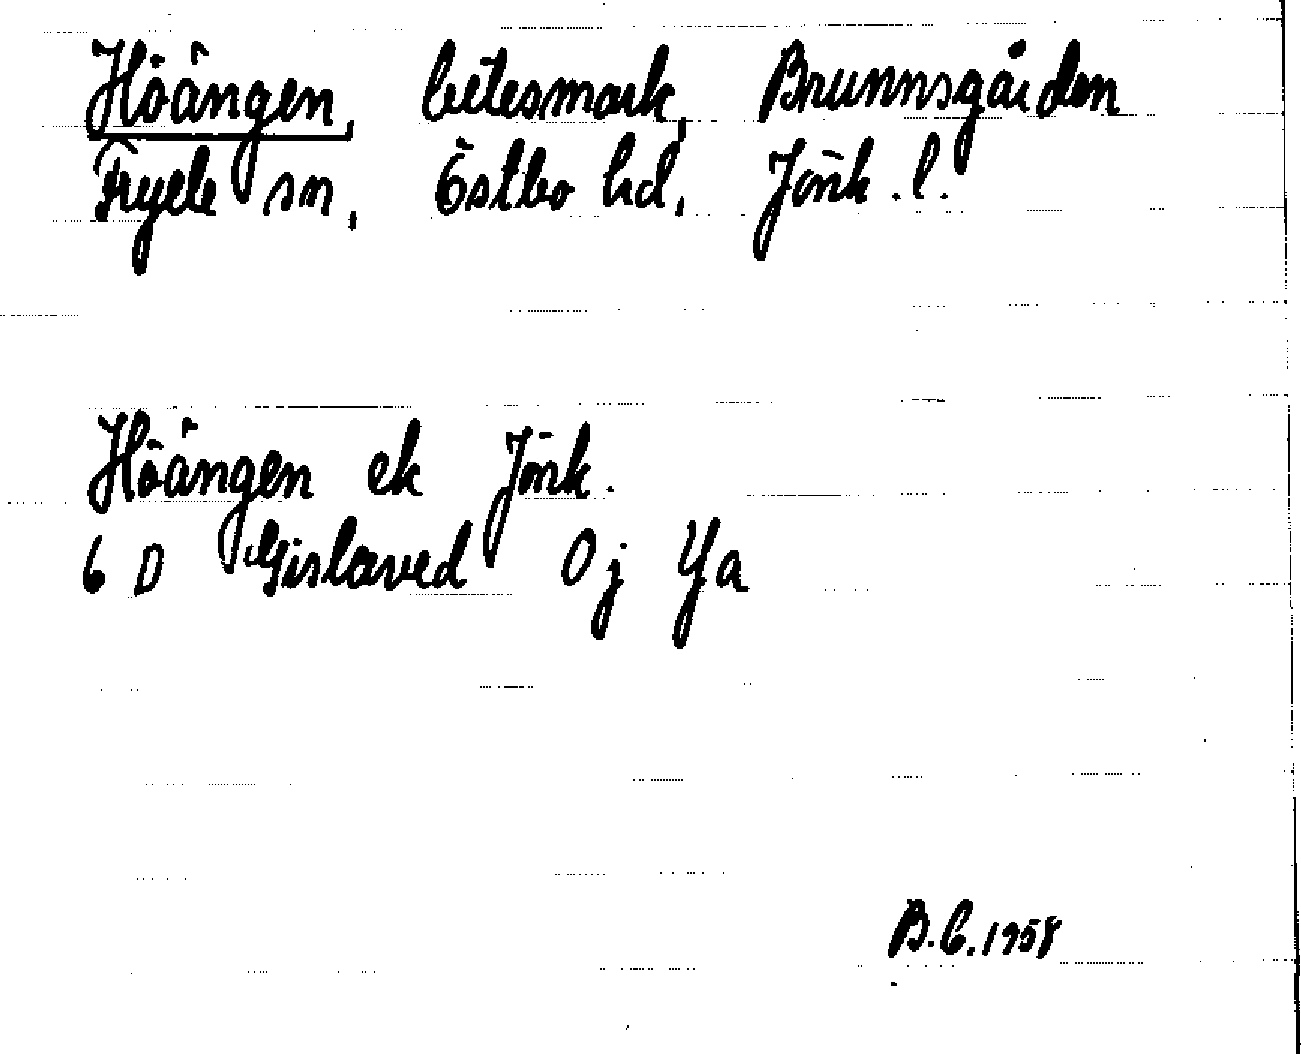 Höängen, betesmark, Brunnsgården
Fryele sn, Östbo hd, Jönk. l.
Höängen ek Jönk.
6 D Gislaved 0 j Ya
B.C. 1958